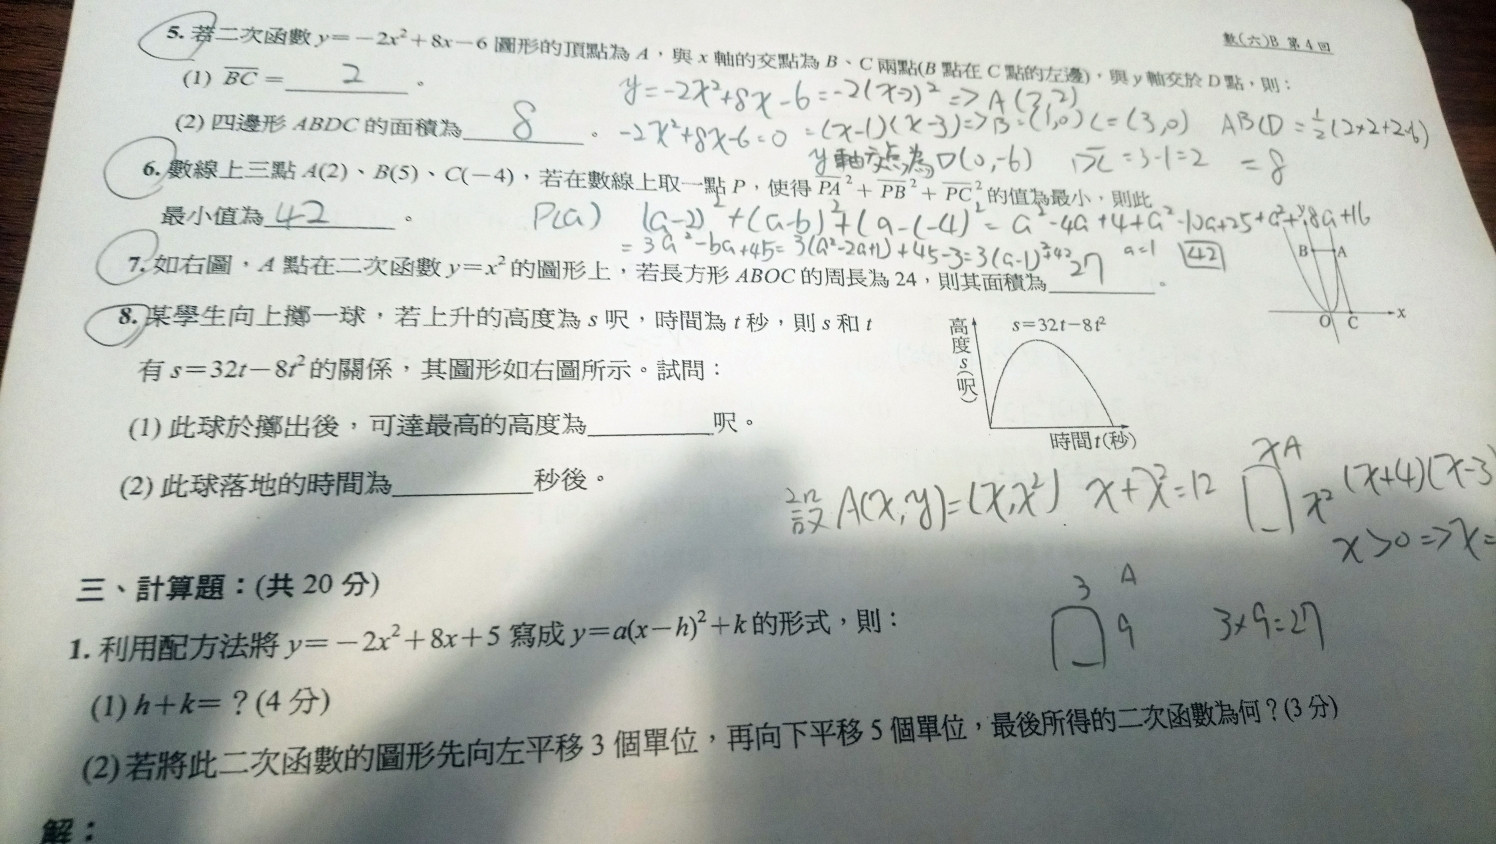 數(六)B 第4回
5. 若二次函數 y=−2x²+8x−6 圖形的頂點為 A，與 x 軸的交點為 B、C 兩點(B 點在 C 點的左邊)，與 y 軸交於 D 點，則：
(1) BC = 2 。
y=-2x²+8x-6=-2(x-2)² => A(2,2)
(2) 四邊形 ABDC 的面積為 8 。
-2x²+8x-6=0 =(x-1)(x-3)=>B=(1,0) C=(3,0) ABCD=½(2×2+2·6)
y軸交點為D(0,-6) BC=3-1=2 =8
6. 數線上三點 A(2)、B(5)、C(−4)，若在數線上取一點 P，使得 PA²+PB²+PC² 的值為最小，則此
最小值為 42 。
P(a) (a-2)²+(a-5)²+(a-(-4))²=a²-4a+4+a²-10a+25+a²+8a+16
=3a²-6a+45=3(a²-2a+1)+45-3=3(a-1)²+42 a=1 42
7. 如右圖，A 點在二次函數 y=x² 的圖形上，若長方形 ABOC 的周長為 24，則其面積為 27 。
B A
O C x
8. 某學生向上擲一球，若上升的高度為 s 呎，時間為 t 秒，則 s 和 t
有 s=32t−8t² 的關係，其圖形如右圖所示。試問：
高度s(呎)
s=32t−8t²
時間t(秒)
(1) 此球於擲出後，可達最高的高度為 呎。
(2) 此球落地的時間為 秒後。
設 A(x,y)=(x,x²) x+x²=12 x A x² (x+4)(x-3
x>0=>x=
3 A 9 3×9=27
三、計算題：(共 20 分)
1. 利用配方法將 y=−2x²+8x+5 寫成 y=a(x−h)²+k 的形式，則：
(1) h+k=？(4 分)
(2) 若將此二次函數的圖形先向左平移 3 個單位，再向下平移 5 個單位，最後所得的二次函數為何？(3 分)
解：